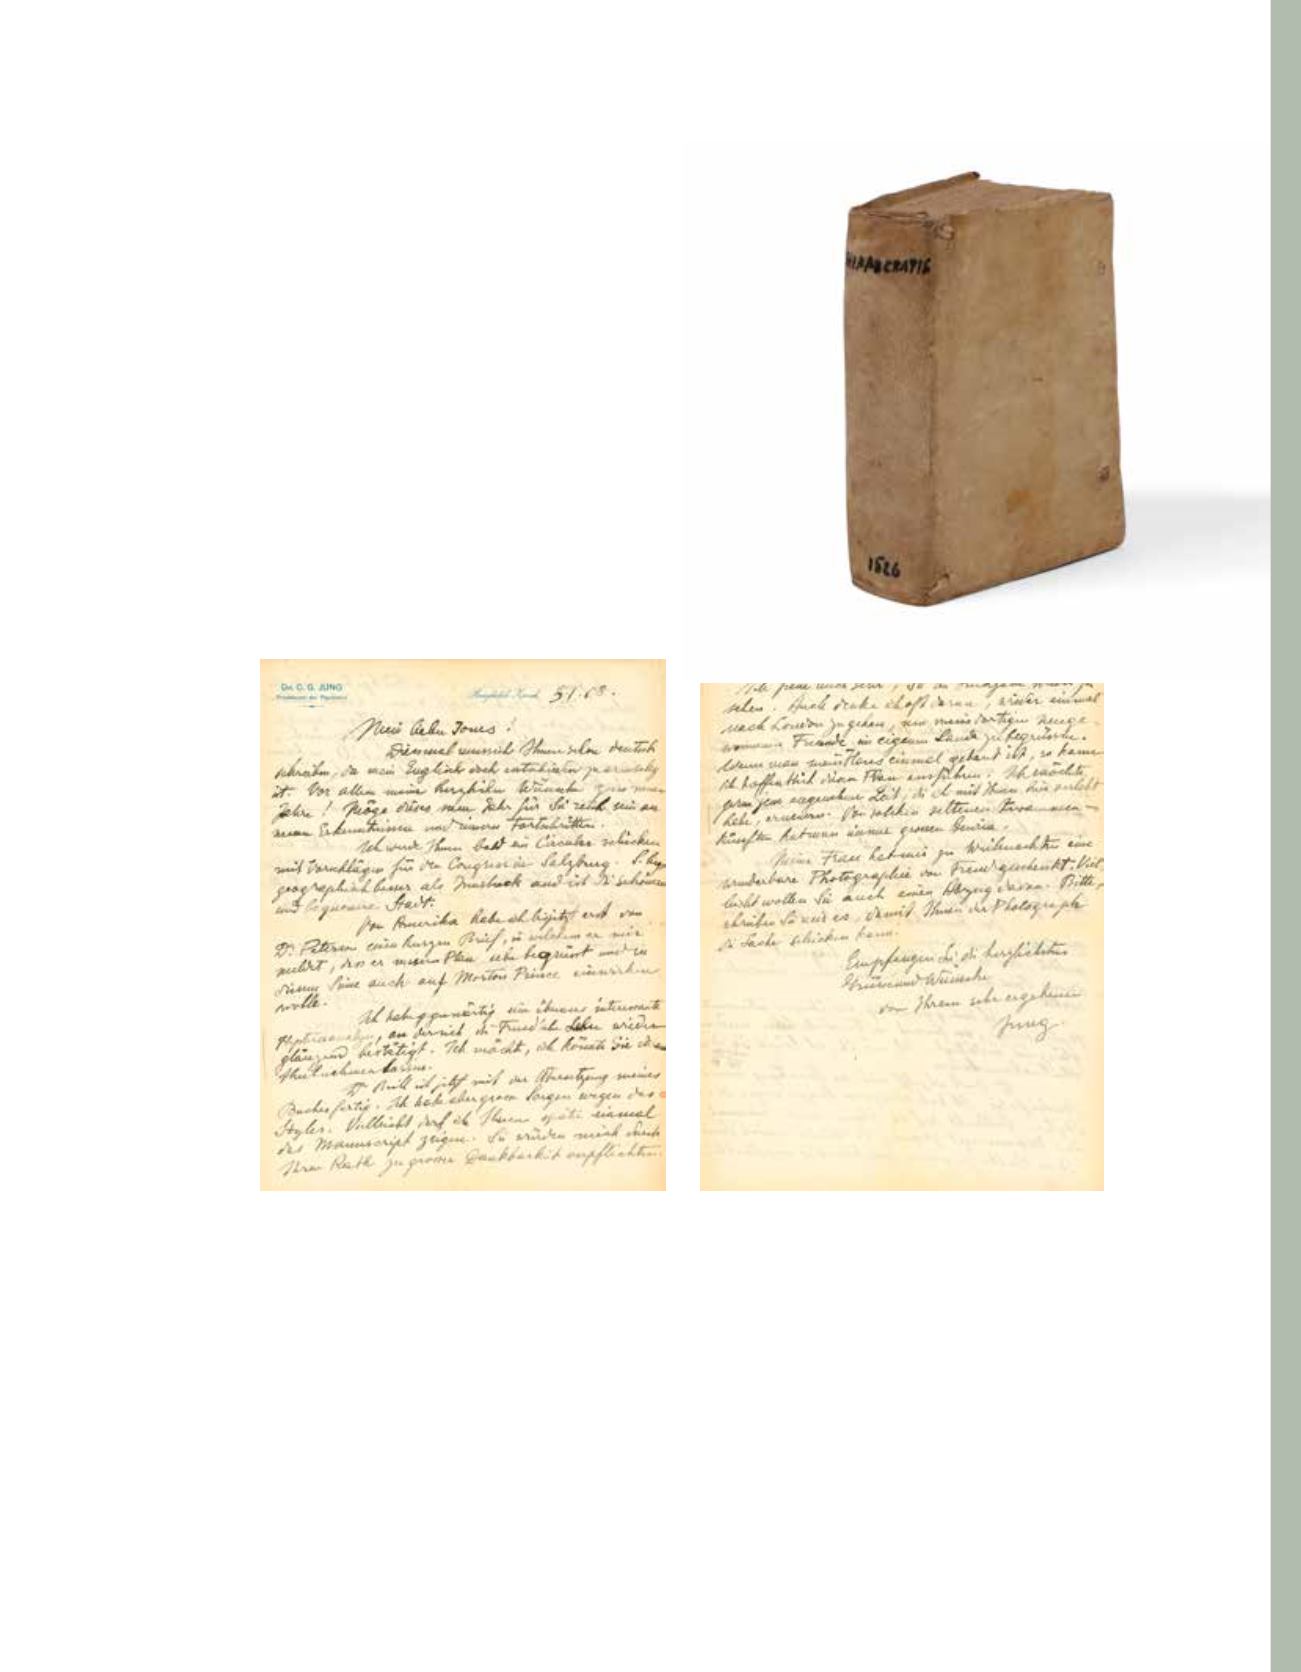 HIPPOCRATIS
1626
DR. C. G. JUNG
Burghölzli-Zürich 5 I. 08.
Mein lieber Jones!
Diesmal muss ich Ihnen schon deutsch
schreiben, da mein Englisch doch
ist. Vor allem meine herzlichen Wünsche zum neuen
Jahre! Möge dieses neue Jahr für Sie reich sein an
neuen Erkenntnissen und innern Fortschritten.
Ich werde Ihnen bald ein Circular schicken
mit Vorschlägen für den Congress in Salzburg. S. liegt
geographisch besser als Innsbruck und ist die schönere
und bequemere Stadt.
Von Amerika habe ich bis jetzt erst von
Dr. Peterson einen kurzen Brief, in welchem er mir
meldet, dass er meinen Plan sehr begrüsst und in
diesem Sinne auch auf Morton Prince einwirken
wolle.
Ich habe gegenwärtig eine überaus interessante
an der sich die Freud'sche Lehre wieder
glänzend bestätigt. Ich möchte, ich könnte Sie daran
theilnehmen lassen.
Dr. Brill ist jetzt mit der Übersetzung meines
Buches fertig. Ich habe aber grosse Sorgen wegen des
Styles. Vielleicht darf ich Ihnen später einmal
das Manuscript zeigen. Sie würden mich durch
Ihren Rath zu grosser Dankbarkeit verpflichten.
Ich freue mich sehr, Sie in Salzburg wieder zu
sehen. Auch denke ich oft daran, wieder einmal
nach London zu gehen, um meine dortigen neuge-
wonnenen Freunde im eigenen Lande zu begrüssen.
Wenn man meint Haus einmal gebaut ist, so kann
ich hoffentlich diesen Plan ausführen. Ich möchte
gern jene angenehme Zeit, die ich mit Ihnen hier verlebt
habe, erneuern. Von solchen seltenen Zusammen-
künften hat man immer grossen Genuss.
Meine Frau hat mir zu Weihnachten eine
wunderbare Photographie von Freud geschenkt. Viel-
leicht wollen Sie auch einen Abzug davon. Bitte,
schreiben Sie mir es, damit Ihnen der Photograph
die Sache schicken kann.
Empfangen Sie die herzlichsten
Grüsse und Wünsche
von Ihrem sehr ergebenen
Jung